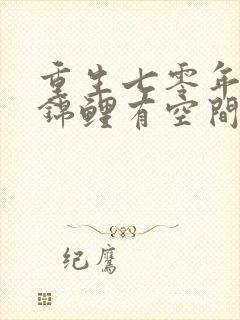 重生七零年
錦鲤有空間
纪鹰